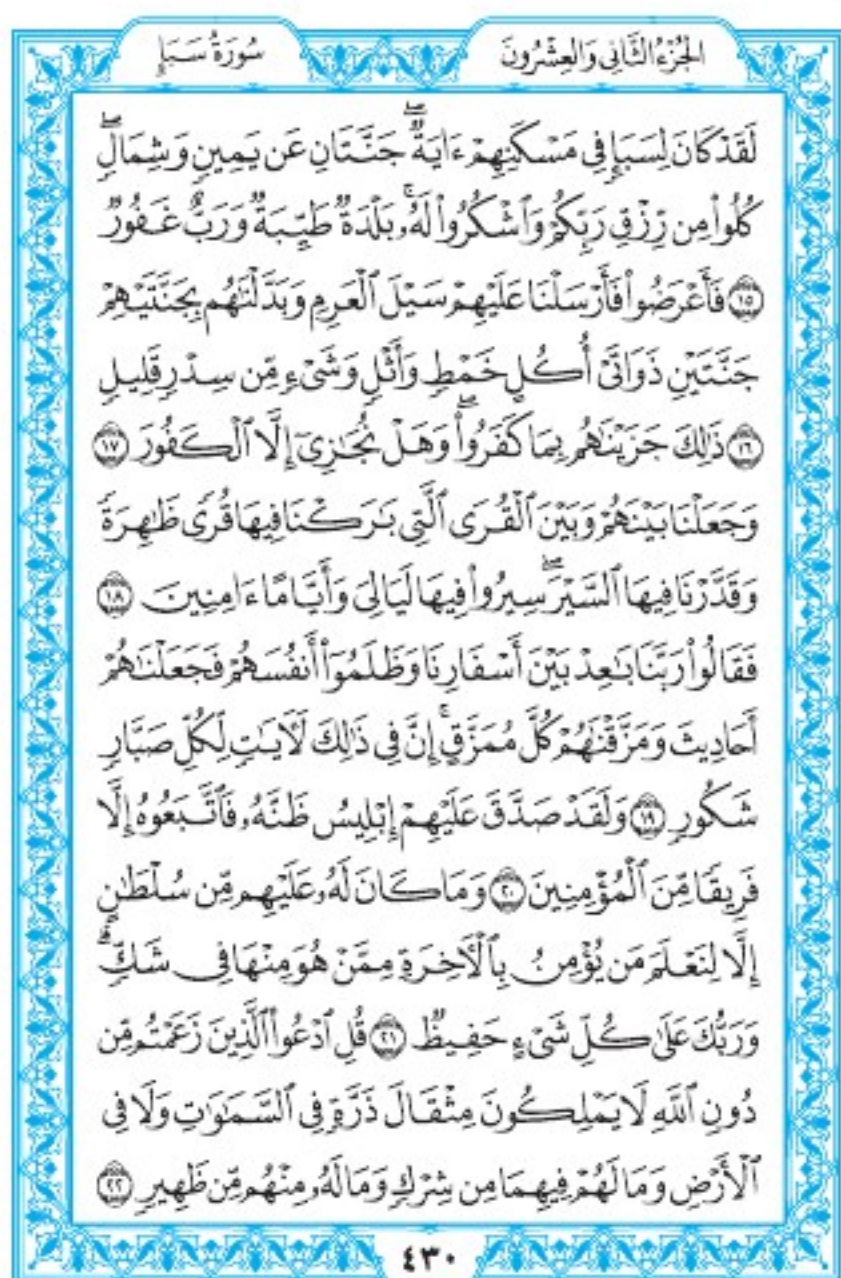 الجُزْءُ الثَّانِي وَالعِشْرُونَ سُورَةُ سَبَإٍ
لَقَدْ كَانَ لِسَبَإٍ فِي مَسْكَنِهِمْ ءَايَةٌۖ جَنَّتَانِ عَن يَمِينٍ وَشِمَالٍۖ
كُلُوا۟ مِن رِّزْقِ رَبِّكُمْ وَٱشْكُرُوا۟ لَهُۥۚ بَلْدَةٌ طَيِّبَةٌ وَرَبٌّ غَفُورٌ
١٥ فَأَعْرَضُوا۟ فَأَرْسَلْنَا عَلَيْهِمْ سَيْلَ ٱلْعَرِمِ وَبَدَّلْنَٰهُم بِجَنَّتَيْهِمْ
جَنَّتَيْنِ ذَوَاتَىْ أُكُلٍ خَمْطٍ وَأَثْلٍ وَشَىْءٍ مِّن سِدْرٍ قَلِيلٍ
١٦ ذَٰلِكَ جَزَيْنَٰهُم بِمَا كَفَرُوا۟ۖ وَهَلْ نُجَٰزِىٓ إِلَّا ٱلْكَفُورَ ١٧
وَجَعَلْنَا بَيْنَهُمْ وَبَيْنَ ٱلْقُرَى ٱلَّتِى بَٰرَكْنَا فِيهَا قُرًى ظَٰهِرَةً
وَقَدَّرْنَا فِيهَا ٱلسَّيْرَۖ سِيرُوا۟ فِيهَا لَيَالِىَ وَأَيَّامًا ءَامِنِينَ ١٨
فَقَالُوا۟ رَبَّنَا بَٰعِدْ بَيْنَ أَسْفَارِنَا وَظَلَمُوٓا۟ أَنفُسَهُمْ فَجَعَلْنَٰهُمْ
أَحَادِيثَ وَمَزَّقْنَٰهُمْ كُلَّ مُمَزَّقٍۚ إِنَّ فِى ذَٰلِكَ لَءَايَٰتٍ لِّكُلِّ صَبَّارٍ
شَكُورٍ ١٩ وَلَقَدْ صَدَّقَ عَلَيْهِمْ إِبْلِيسُ ظَنَّهُۥ فَٱتَّبَعُوهُ إِلَّا
فَرِيقًا مِّنَ ٱلْمُؤْمِنِينَ ٢٠ وَمَا كَانَ لَهُۥ عَلَيْهِم مِّن سُلْطَٰنٍ
إِلَّا لِنَعْلَمَ مَن يُؤْمِنُ بِٱلْءَاخِرَةِ مِمَّنْ هُوَ مِنْهَا فِى شَكٍّۗ
وَرَبُّكَ عَلَىٰ كُلِّ شَىْءٍ حَفِيظٌ ٢١ قُلِ ٱدْعُوا۟ ٱلَّذِينَ زَعَمْتُم مِّن
دُونِ ٱللَّهِ لَا يَمْلِكُونَ مِثْقَالَ ذَرَّةٍ فِى ٱلسَّمَٰوَٰتِ وَلَا فِى
ٱلْأَرْضِ وَمَا لَهُمْ فِيهِمَا مِن شِرْكٍ وَمَا لَهُۥ مِنْهُم مِّن ظَهِيرٍ ٢٢
٤٣٠